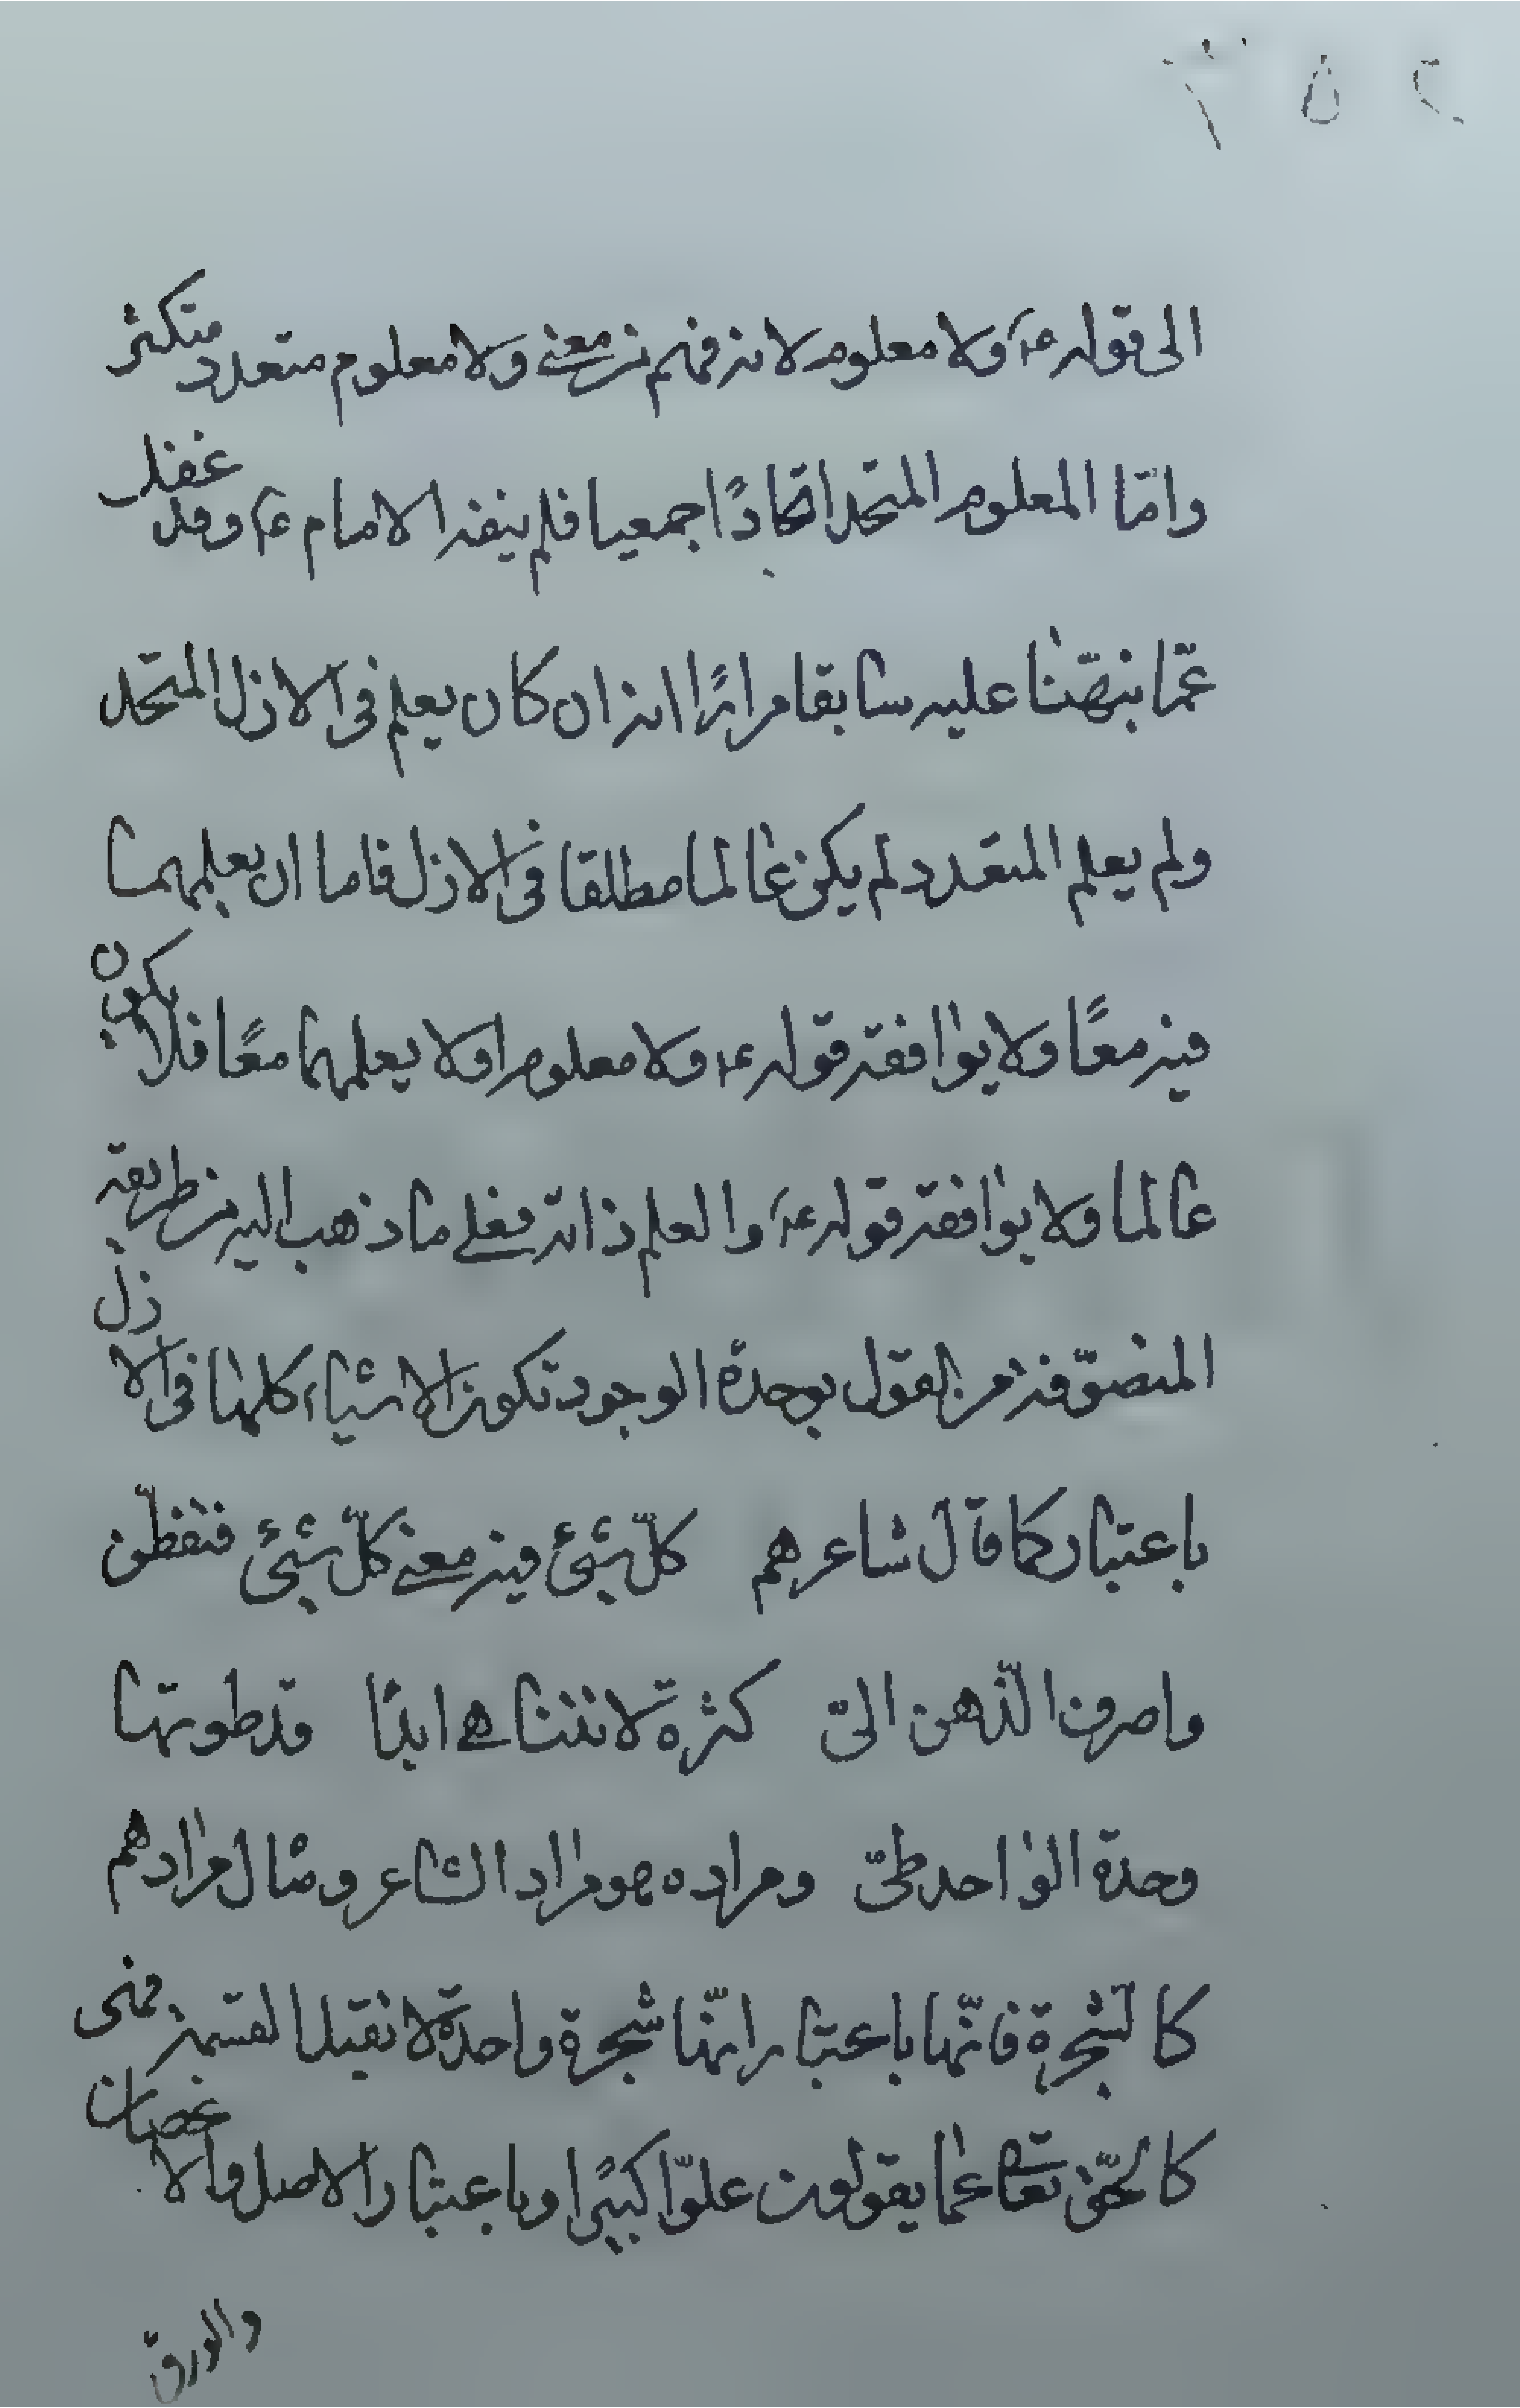 الى قوله ع ولا معلوم لانه فهم منه معنى ولا معلوم متعدد متكثر
وامّا المعلوم المتحد اتحادًا جمعيا فلم ينفه الامام ع وقد غفل
عمّا نبّهنا عليه سابقا مرارًا انه ان كان يعلم فى الازل المتحد
ولم يعلم المتعدد لم يكن عالما مطلقا فى الازل فاما ان يعلمهما
فيه معًا ولا يوافقه قوله ع ولا معلوم اولا يعلمهما معًا فلا يكون
عالما ولا يوافقه قوله ع والعلم ذاته فعلى ما ذهب اليه من طريقة
المتصوّفة من القول بوحدة الوجود تكون الاشياء كلها فى الازل
باعتبار كما قال شاعرهم كلّ شيئ فيه معنى كلّ شيئ فتفطّن
واصرف الذهن الىّ كثرة لا تتناهى ابدًا قد طوتها
وحدة الواحد طىّ ومراده هو مراد الشاعر ومثال مرادهم
كالشجرة فانّها باعتبار انّها شجرة واحدة لا تقبل القسمة فهى
كالحقّ تعالى عما يقولون علوّا كبيرًا وباعتبار الاصل والاغصان
والورق